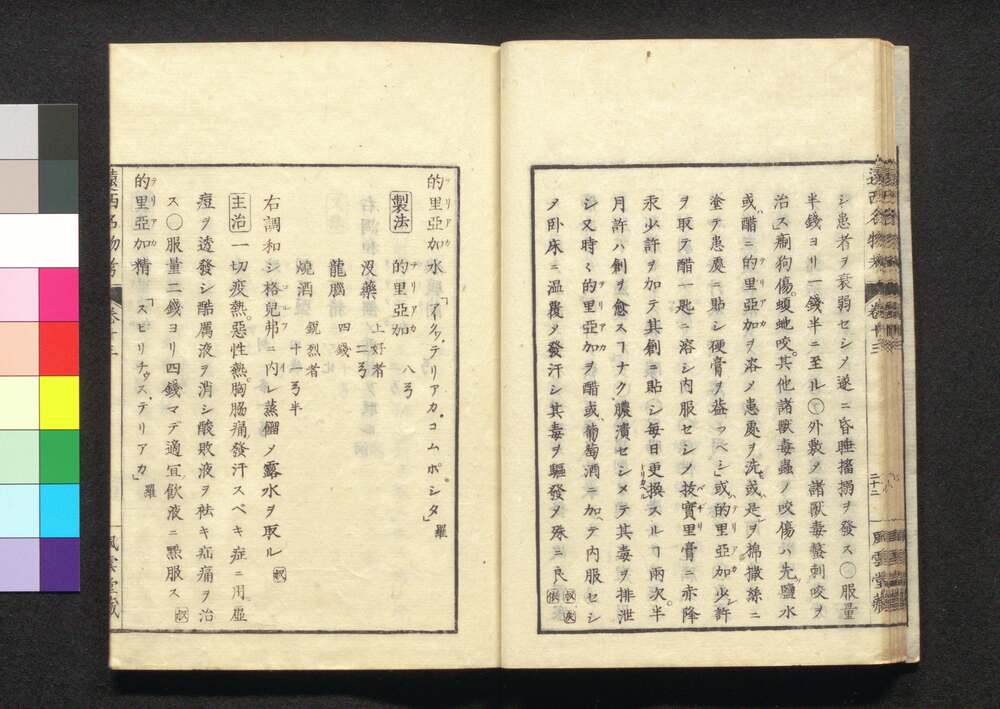 シ患者ヲ衰弱セシメ遂ニ昏睡搐搦ヲ發ス○服量
半錢ヨリ一錢半ニ至ル○外敷メ諸獸毒螫刺咬ヲ
治ス瘈狗傷蝮虵咬其他諸獸毒蟲ノ咬傷ハ先鹽水
或ハ醋ニ的里亞加ヲ溶メ患處ヲ洗或是ヲ棉撒絲ニ
塗テ患處ニ貼シ硬膏ヲ葢フベシ或的里亞加少許
ヲ取テ醋一匙ニ溶シ內服セシメ拔實里膏ニ赤降
汞少許ヲ加テ其創ニ貼シ每日更換スルヿ兩次半
月許ハ創ヲ愈スヿナク膿潰セシメテ其毒ヲ排泄
シ又時々的里亞加ヲ醋或葡萄酒ニ加テ內服セシ
メ卧床ニ温覆メ發汗シ其毒ヲ驅發メ殊ニ良
遠西名物考 卷十三 二十二 風雲堂藏
的里亞加水「アクヷ、テリアカ、コムポシタ」羅
製法 的里亞加 上好者 八弓
沒藥 二弓
龍腦 四錢
燒酒 鋭烈者 十二弓半
右調和シ格兒弗ニ內レ蒸餾メ露水ヲ取ル
主治 一切疫熱惡性熱胸膓痛發汗スベキ症ニ用虛
痘ヲ透發シ酷厲液ヲ消シ酸敗液ヲ祛キ疝痛ヲ治
ス○服量二錢ヨリ四錢マデ適宜飮液ニ㸃服ス
的里亞加精「スピリチュス、テリアカ」羅
遠西名物考 卷十三 風雲堂藏